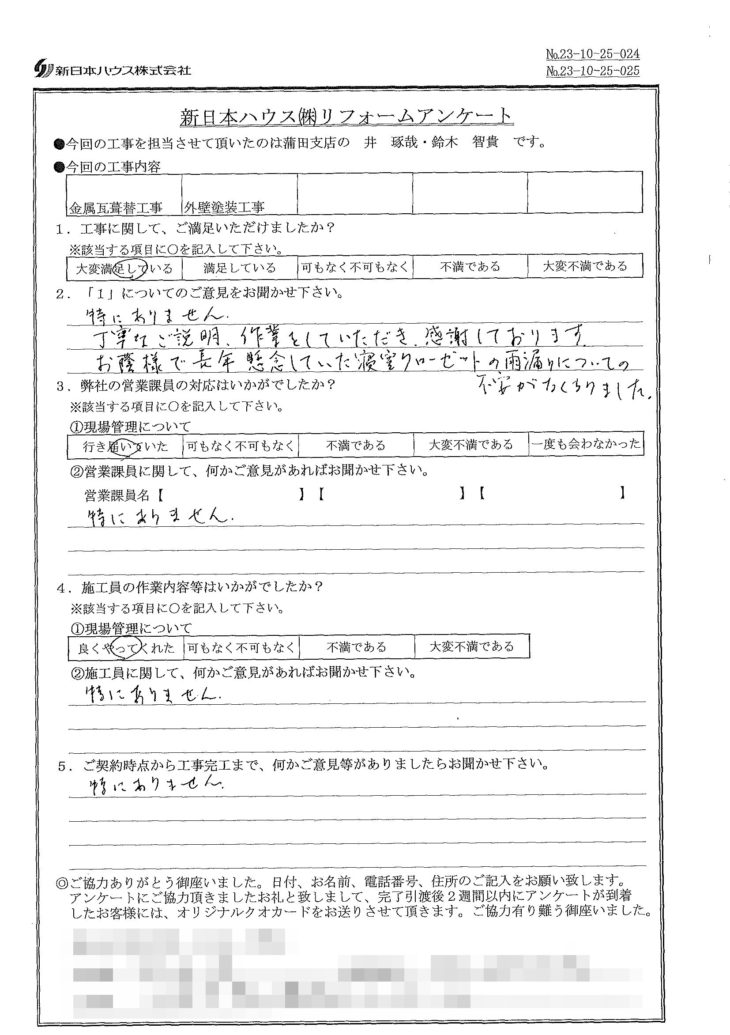 新日本ハウス株式会社
№23-10-25-024
№23-10-25-025
新日本ハウス㈱リフォームアンケート
●今回の工事を担当させて頂いたのは蒲田支店の 井 琢哉・鈴木 智貴 です。
●今回の工事内容
金属瓦葺替工事 外壁塗装工事
1．工事に関して、ご満足いただけましたか？
※該当する項目に○を記入して下さい。
大変満足している 満足している 可もなく不可もなく 不満である 大変不満である
2．「1」についてのご意見をお聞かせ下さい。
特にありません.
丁寧なご説明、作業をしていただき、感謝しております.
お蔭様で長年懸念していた寝室クローゼットの雨漏りについての
不安がなくなりました.
3．弊社の営業課員の対応はいかがでしたか？
※該当する項目に○を記入して下さい。
①現場管理について
行き届いていた 可もなく不可もなく 不満である 大変不満である 一度も会わなかった
②営業課員に関して、何かご意見があればお聞かせ下さい。
営業課員名【 】【 】【 】
特にありません.
4．施工員の作業内容等はいかがでしたか？
※該当する項目に○を記入して下さい。
①現場管理について
良くやってくれた 可もなく不可もなく 不満である 大変不満である
②施工員に関して、何かご意見があればお聞かせ下さい。
特にありません.
5．ご契約時点から工事完工まで、何かご意見等がありましたらお聞かせ下さい。
特にありません.
◎ご協力ありがとう御座いました。日付、お名前、電話番号、住所のご記入をお願い致します。
アンケートにご協力頂きましたお礼と致しまして、完了引渡後2週間以内にアンケートが到着
したお客様には、オリジナルクオカードをお送りさせて頂きます。ご協力有り難う御座いました。